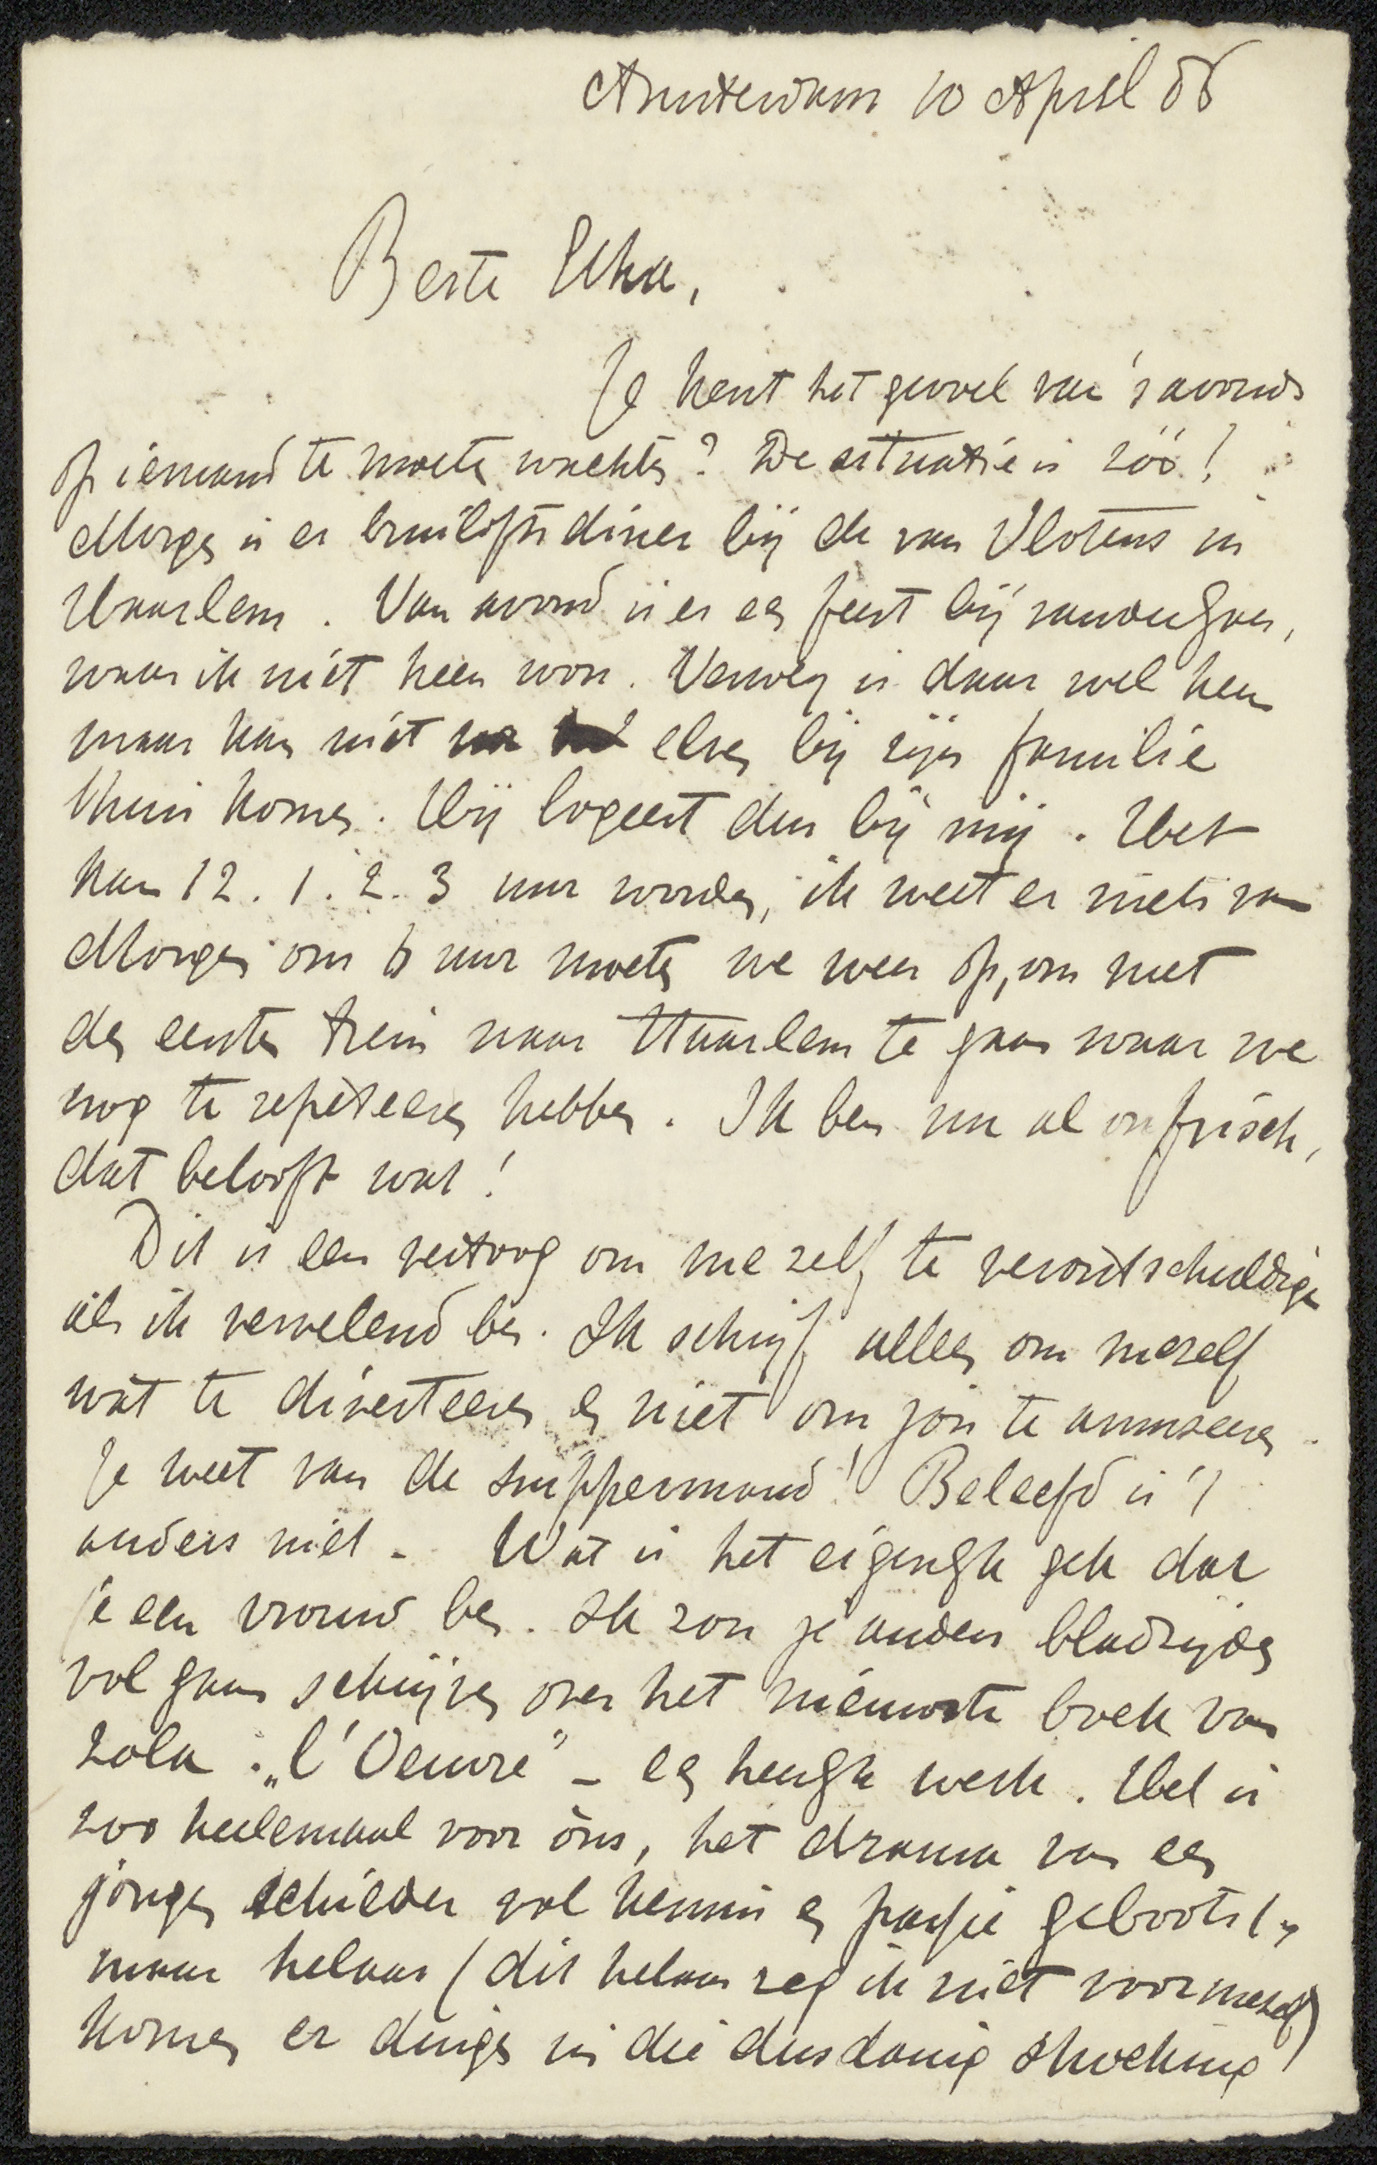 Amsterdam 10 April 86
Beste Eha,
Je kent het gevoel van 's avonds
op iemand te moeten wachten? De situatie is zóó!
Morgen is er bruiloftsdiner bij de van Vlotens in
Haarlem. Van avond is er een feest bij van der Goes,
waar ik niet heen wou. Verwey is daar wel heen
maar kan niet elven bij zijn familie
thuis komen. Hij logeert dus bij mij. Het
kan 12. 1. 2. 3 uur worden, ik weet er niets van
Morgen om 6 uur moeten we weer op, om met
den eersten trein naar Haarlem te gaan waar we
nog te repeteeren hebben. Ik ben nu al onfrisch,
dat belooft wat!
Dit is een vertoog om me zelf te verontschuldigen
als ik vervelend ben. Ik schrijf alleen om mezelf
wat te diverteeren en niet om jou te amuseeren.
Je weet van de snippermand! Beleefd is 't
anders niet - Wat is het eigenlijk gek dat
je een vrouw ben. Ik zou je anders bladzijden
vol gaan schrijven over het nieuwste boek van
Zola. „l'Oeuvre" - een heuglijk werk. Het is
zoo heelemaal voor òns, het drama van een
jongen schilder vol kennis en passie geboots(
maar helaas (dit helaas zeg ik niet voor mezelf)
komen er dingen in die dusdanig shocking